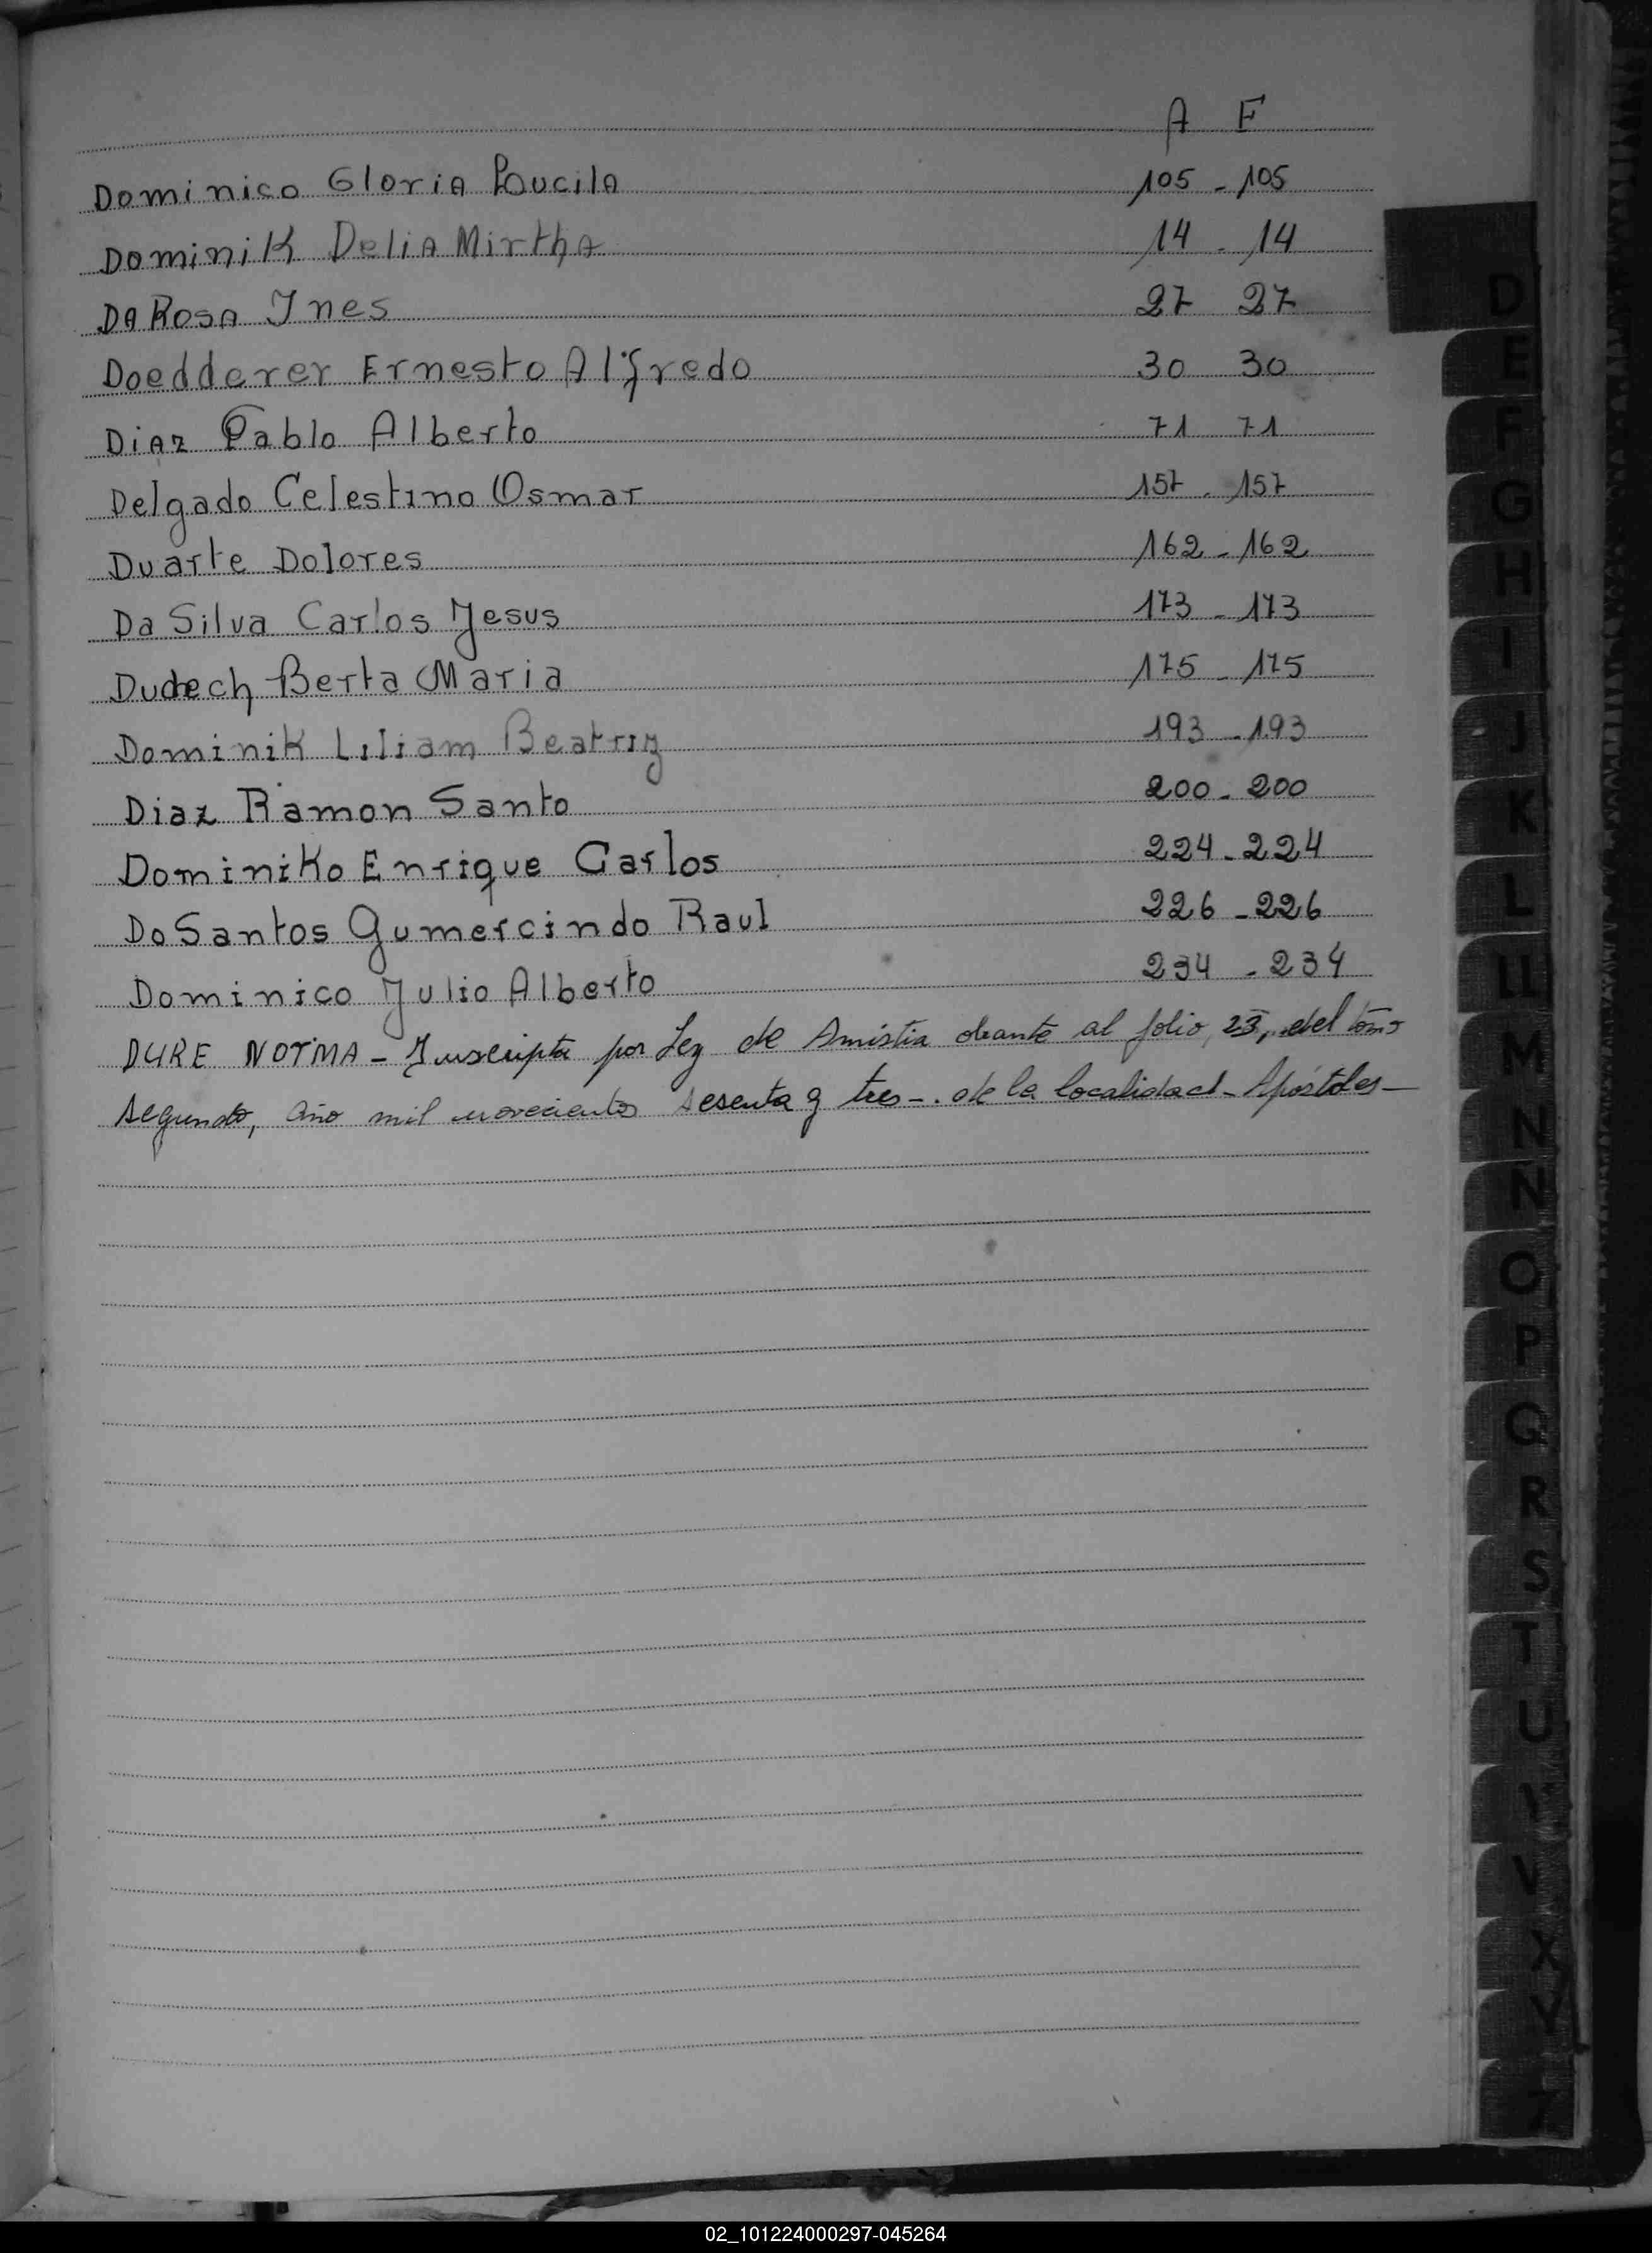 A F
Dominico Gloria Loucila 105 - 105
Dominik Delia Mirtha 14 - 14
Da Rosa Ines 27 27
Doedderer Ernesto Alfredo 30 30
Diaz Pablo Alberto 71 71
Delgado Celestino Osmar 157 - 157
Duarte Dolores 162 - 162
Da Silva Carlos Jesus 173 - 173
Dudech Berta Maria 175 - 175
Dominik Liliam Beatriz 193 - 193
Diaz Ramon Santo 200 - 200
Dominiko Enrique Carlos 224 - 224
Do Santos Gumercindo Raul 226 - 226
Dominico Julio Alberto 234 - 234
DURE NOTMA - Inscripta por Ley de Amistia obrante al folio, 23, del tomo
segundo, año mil novecientos sesenta y tres -. de la localidad - Apóstoles -
D
E
F
G
H
I
J
K
L
LL
M
N
Ñ
O
P
Q
R
S
T
U
V
X
Y
Z
02_101224000297-045264